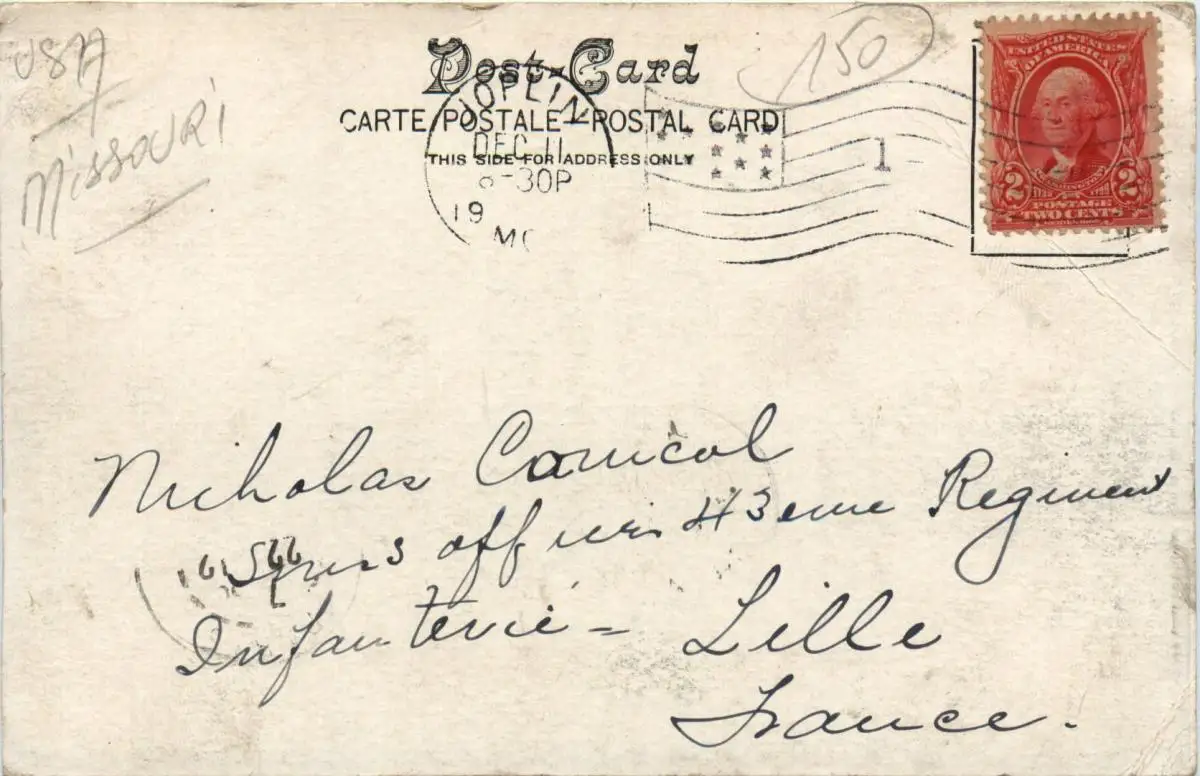 USA
Missouri
150
Post Card
CARTE POSTALE—POSTAL CARD
THIS SIDE FOR ADDRESS ONLY
JOPLIN
DEC 11
-30P
19
MO
1
UNITED STATES
OF AMERICA
WASHINGTON
2 2
POSTAGE
TWO CENTS
Nicholas
Sous officier 43eme Regiment
Infanterie - Lille
France.